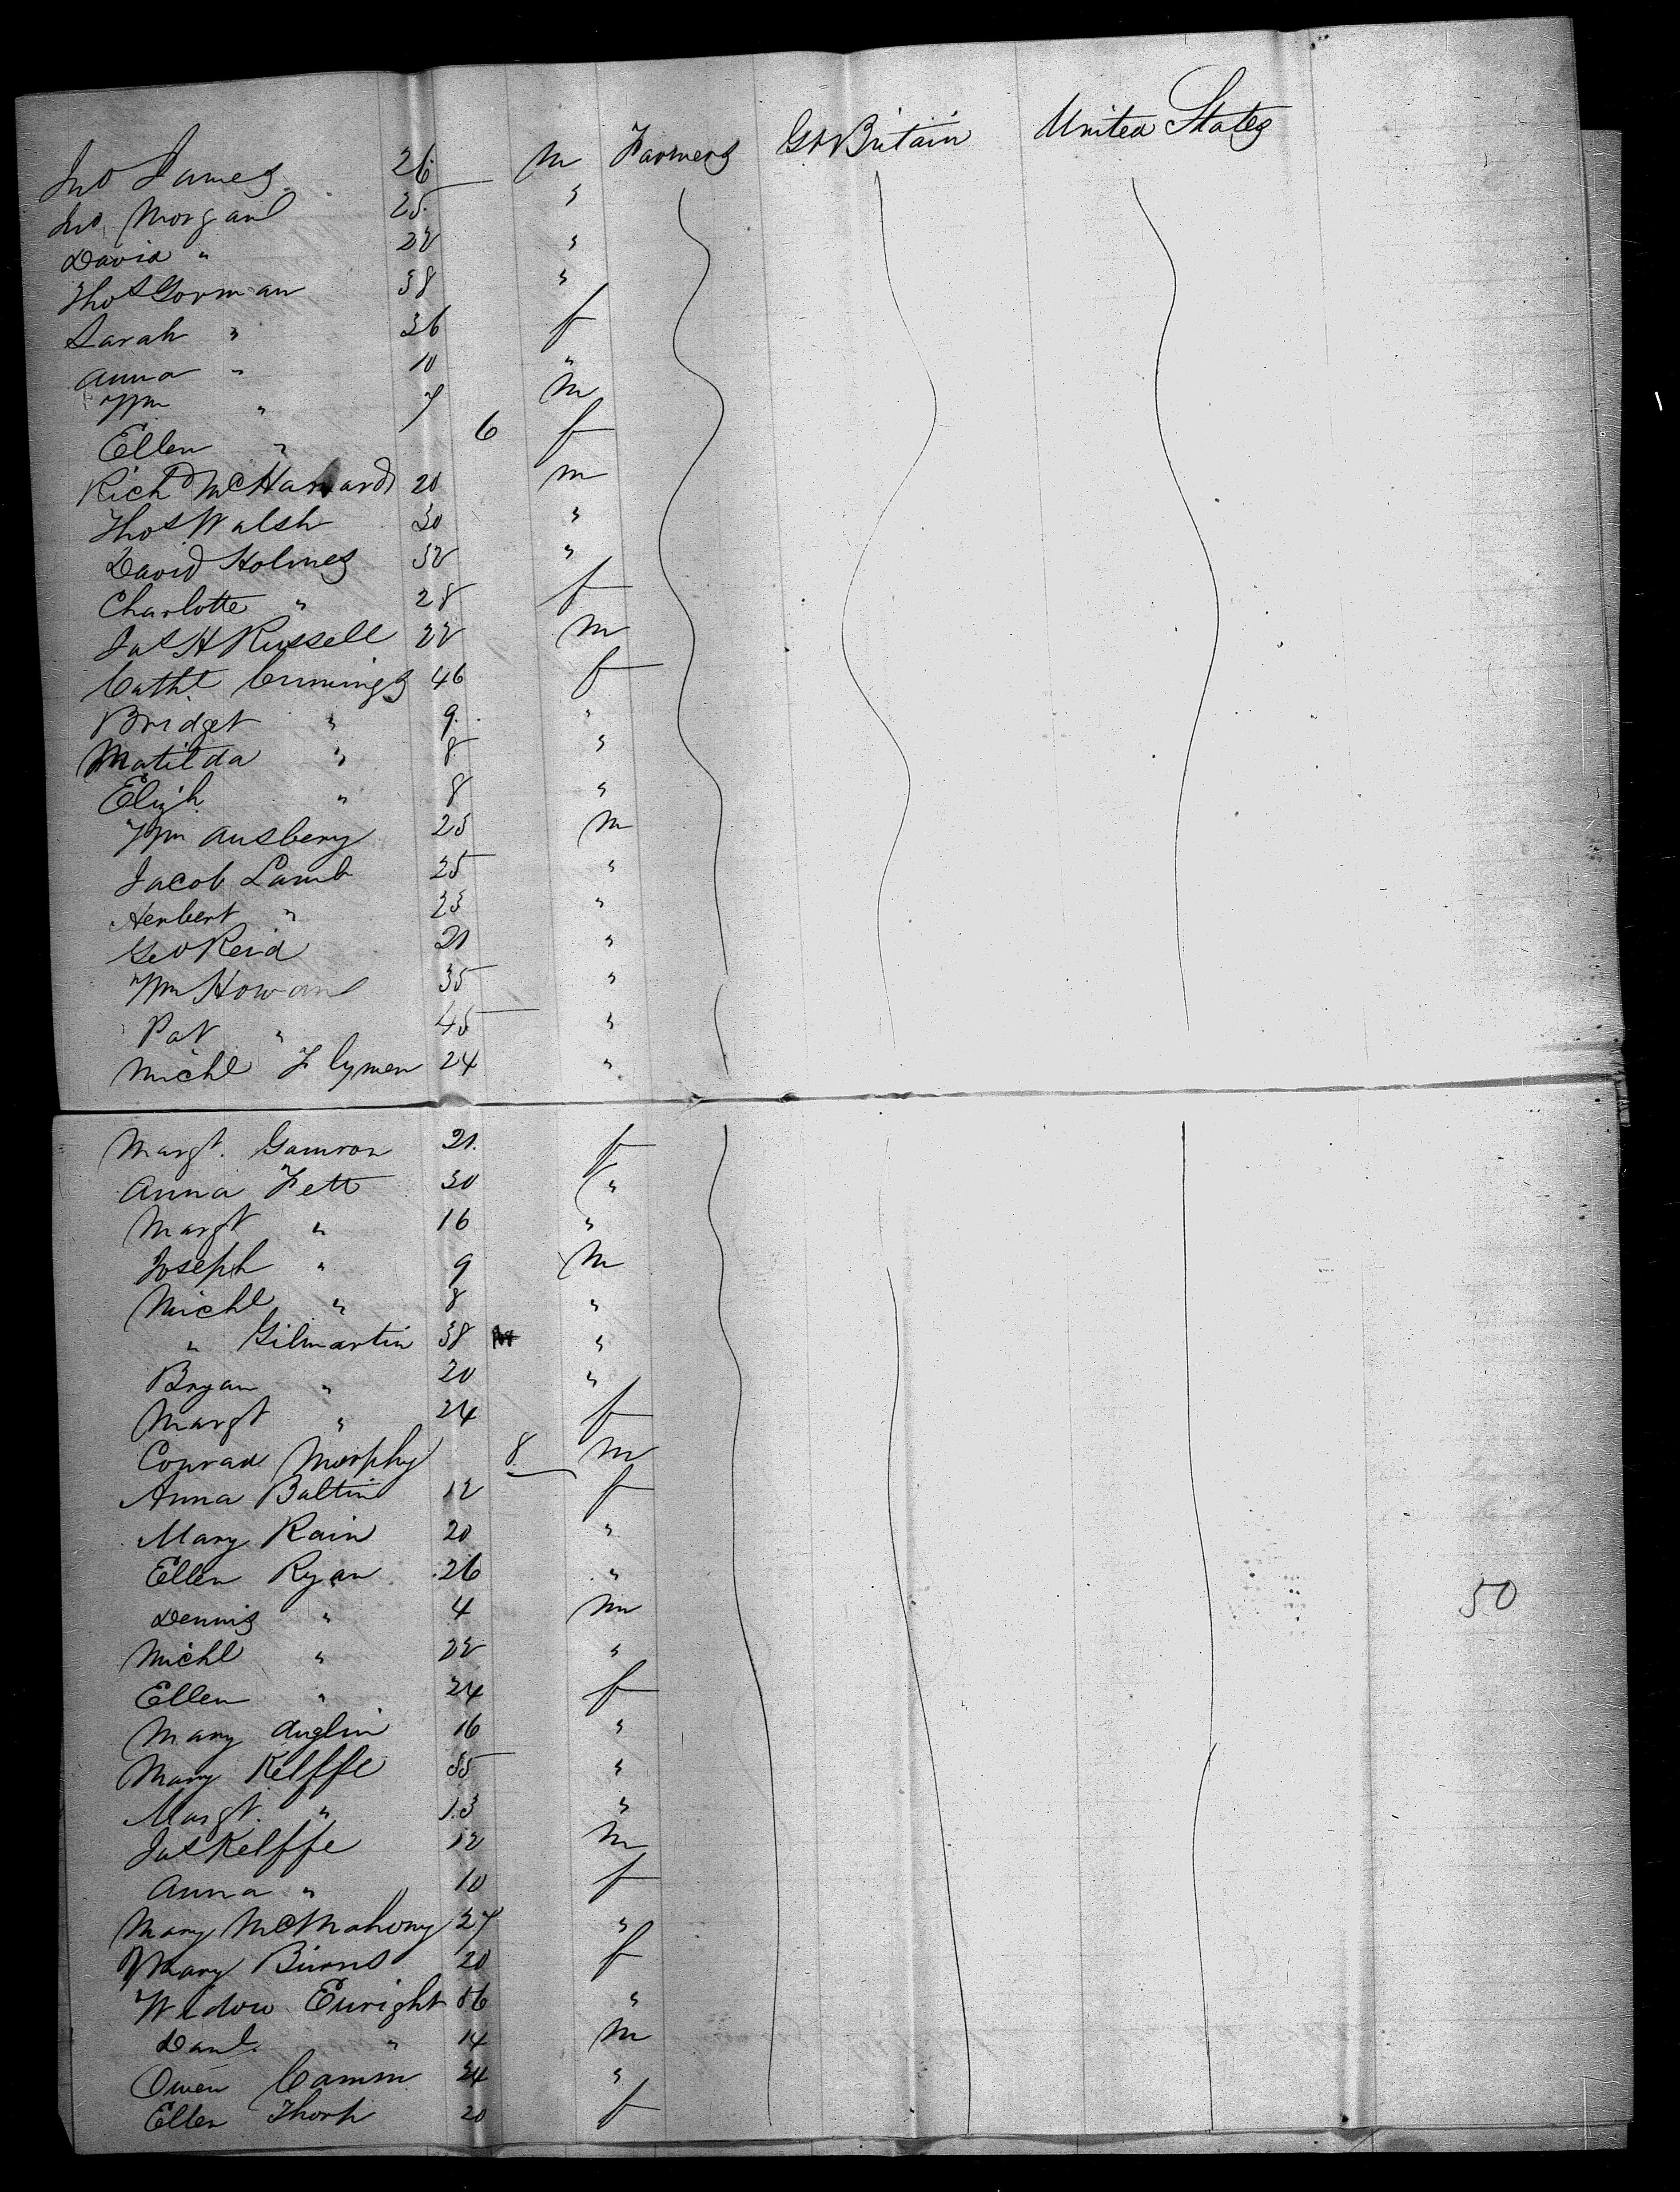 Jno James 26 m Farmers Gt Britain United States
Jno Morgan 25 "
David " 22 "
Thos Gorman 38 "
Sarah " 36 f
Anna " 10 "
Wm " 7 m
Ellen " 6 f
Richd McHarward 20 m
Thos Walsh 30 "
David Holmes 32 "
Charlotte " 28 f
Jas H Russell 22 m
Cathe Cumings 46 f
Bridget " 9 "
Matilda " 8 "
Elizh " 8 "
Wm Ausbery 23 m
Jacob Lamb 25 "
Herbert " 23 "
Geo Reid 21 "
Wm Howard 35 "
Pat " 45 "
Michl Flymen 24 "
Margt. Gamron 21 f
Anna Fett 30 "
Margt " 16 "
Joseph " 9 m
Michl " 8 "
" Gilmartin 38 "
Bryan " 20 "
Margt " 24 f
Conrad Murphy 8 m
Anna Baltin 12 f
Mary Rain 20 "
Ellen Ryan 26 "
Dennis " 4 m 50
Michl " 22 "
Ellen " 24 f
Mary Anglin 16 "
Mary Kelffe 35 "
Margt. " 13 "
Jas Kelffe 12 m
Anna " 10 f
Mary McMahony 27 "
Mary Burns 20 f
Widow Enright 56 "
Danl. " 14 m
Owen Camm 24 "
Ellen Thorp 20 f